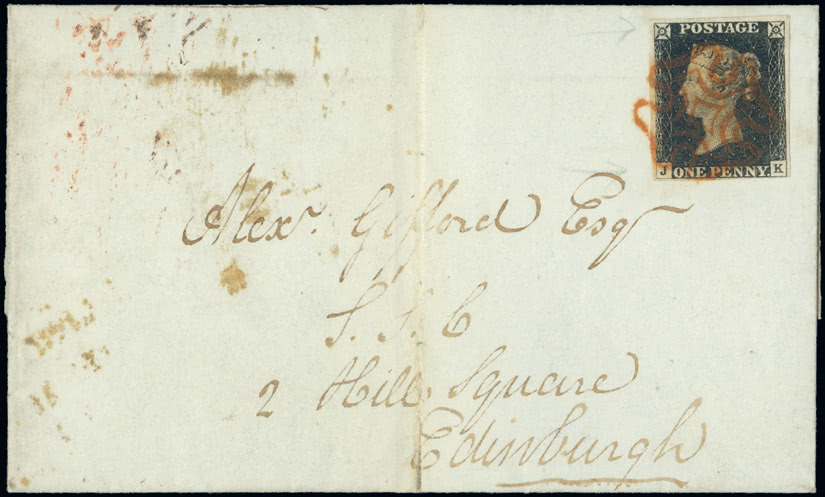 POSTAGE
J ONE PENNY. K
Alexr. Gifford Esqr
S. S. C
2 Hill Square
Edinburgh